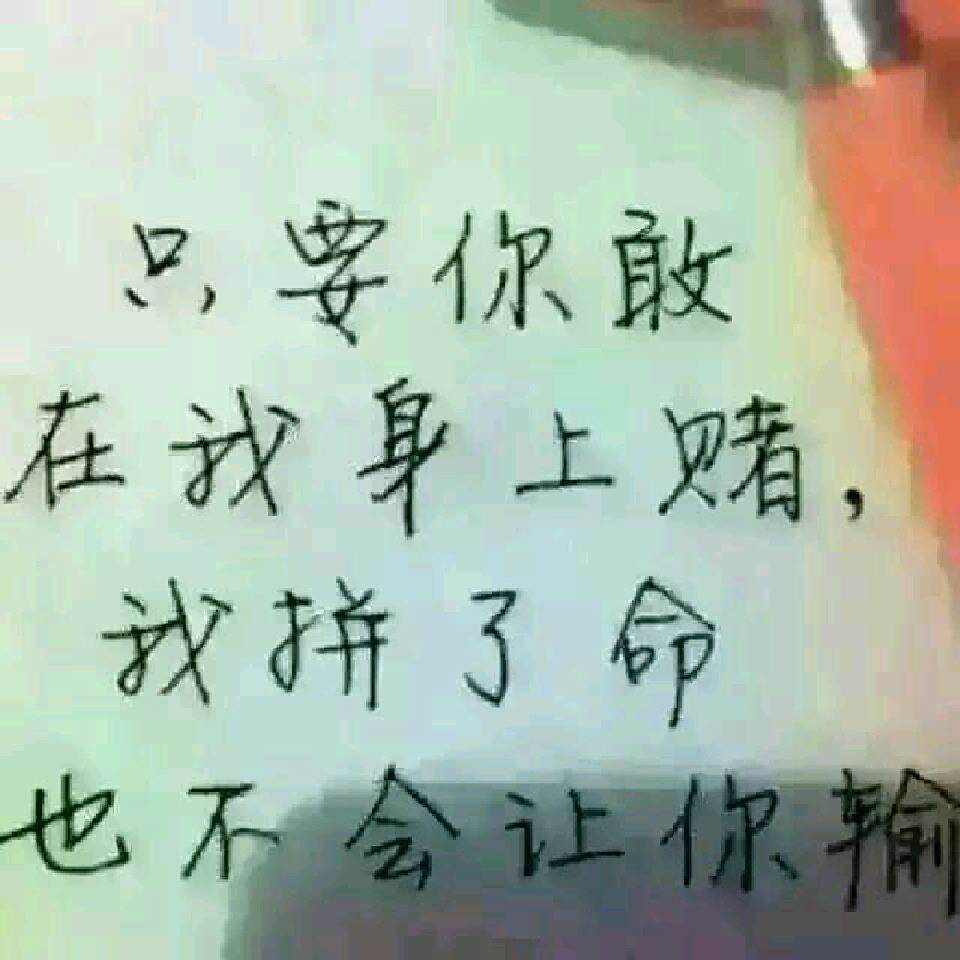 只要你敢
在我身上赌，
我拼了命
也不会让你输